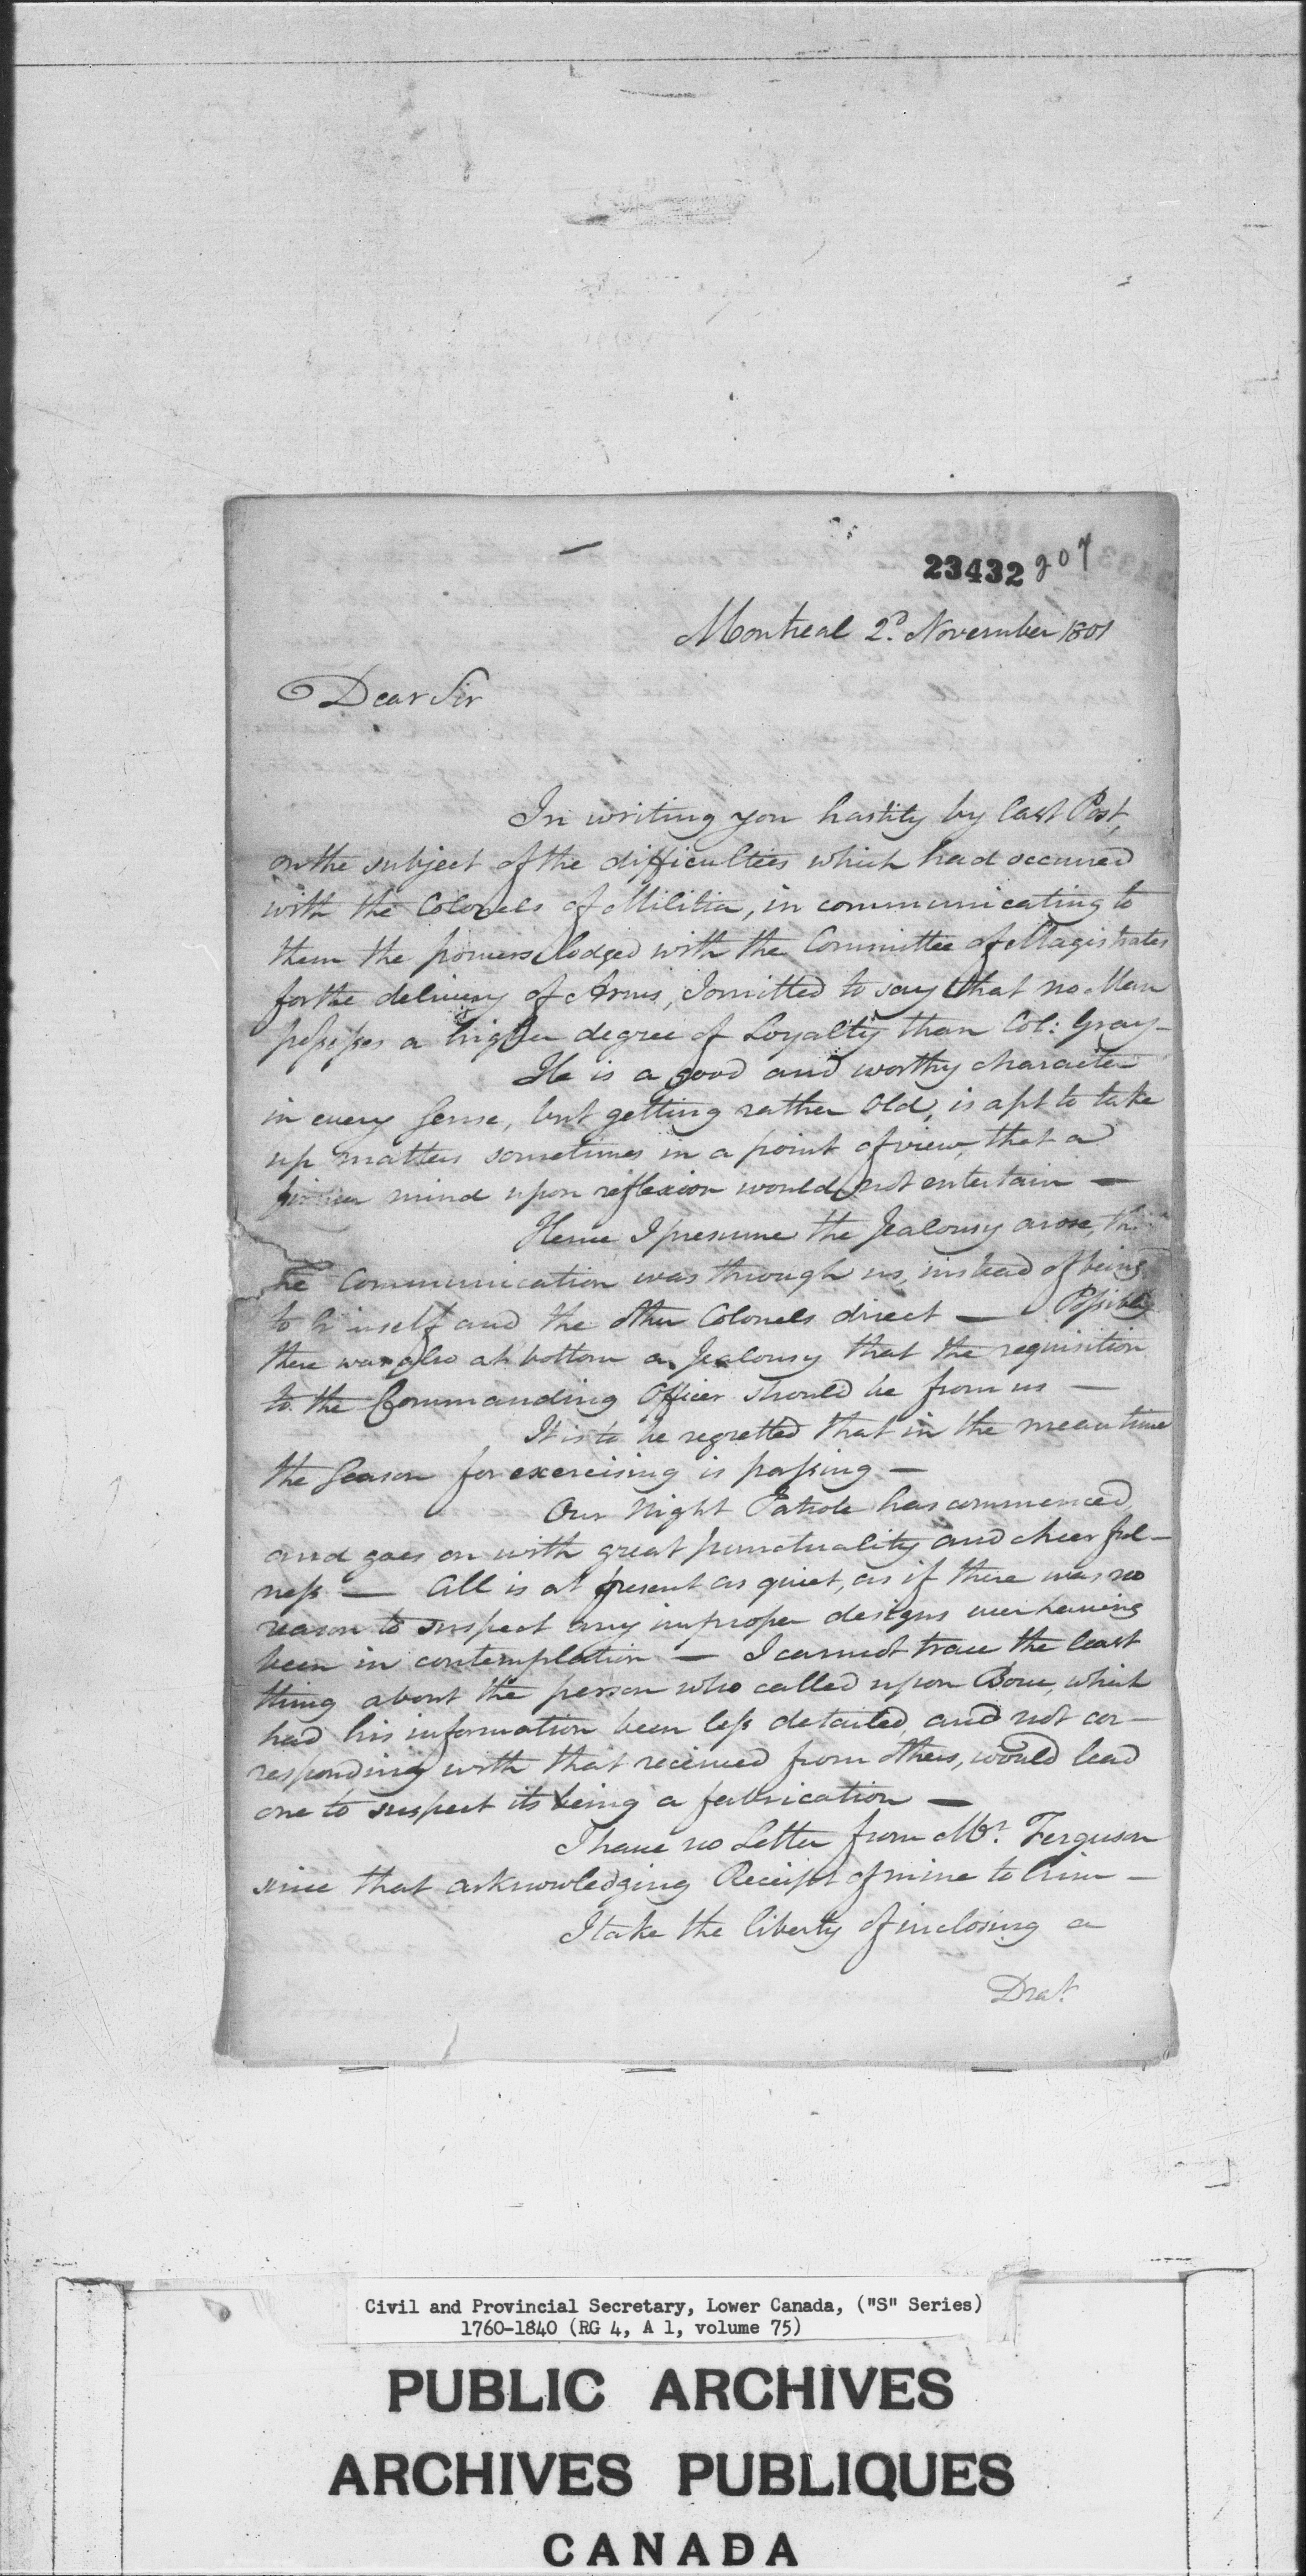 23432 207
Montreal 2d. November 1801
Dear Sir
In writing you hastily by last Post,
on the subject of the difficulties which had occurred
with the Colonels of Militia, in communicating to
them the powers lodged with the Committee of Magistrates
for the delivery of Arms, I omitted to say that no Man
possesses a higher degree of Loyalty than Col: Gray —
He is a good and worthy character
in every Sense, but getting rather Old, is apt to take
up matters sometimes in a point of view, that a
mind upon reflexion would not entertain —
Hence I presume the Jealousy arose, that
the Communication was through us, instead of being
to himself and the other Colonels direct — Possibly
there was also at bottom a Jealousy that the requisition
to the Commanding Officer should be from us —
It is to be regretted that in the mean time
the Season for exercising is passing —
Our Night Patrole has commenced,
and goes on with great punctuality and cheerful-
ness — All is at present as quiet, as if there was no
reason to suspect any improper designs ever having
been in contemplation — I cannot trace the least
thing about the person who called upon Bow, which
had his information been less detailed, and not cor-
responding with that received from others, would lead
one to suspect its being a fabrication —
I have no Letter from Mr. Ferguson
since that acknowledging Receipt of mine to him —
I take the liberty of inclosing a
Draft
Civil and Provincial Secretary, Lower Canada, ("S" Series)
1760-1840 (RG 4, A 1, volume 75)
PUBLIC ARCHIVES
ARCHIVES PUBLIQUES
CANADA